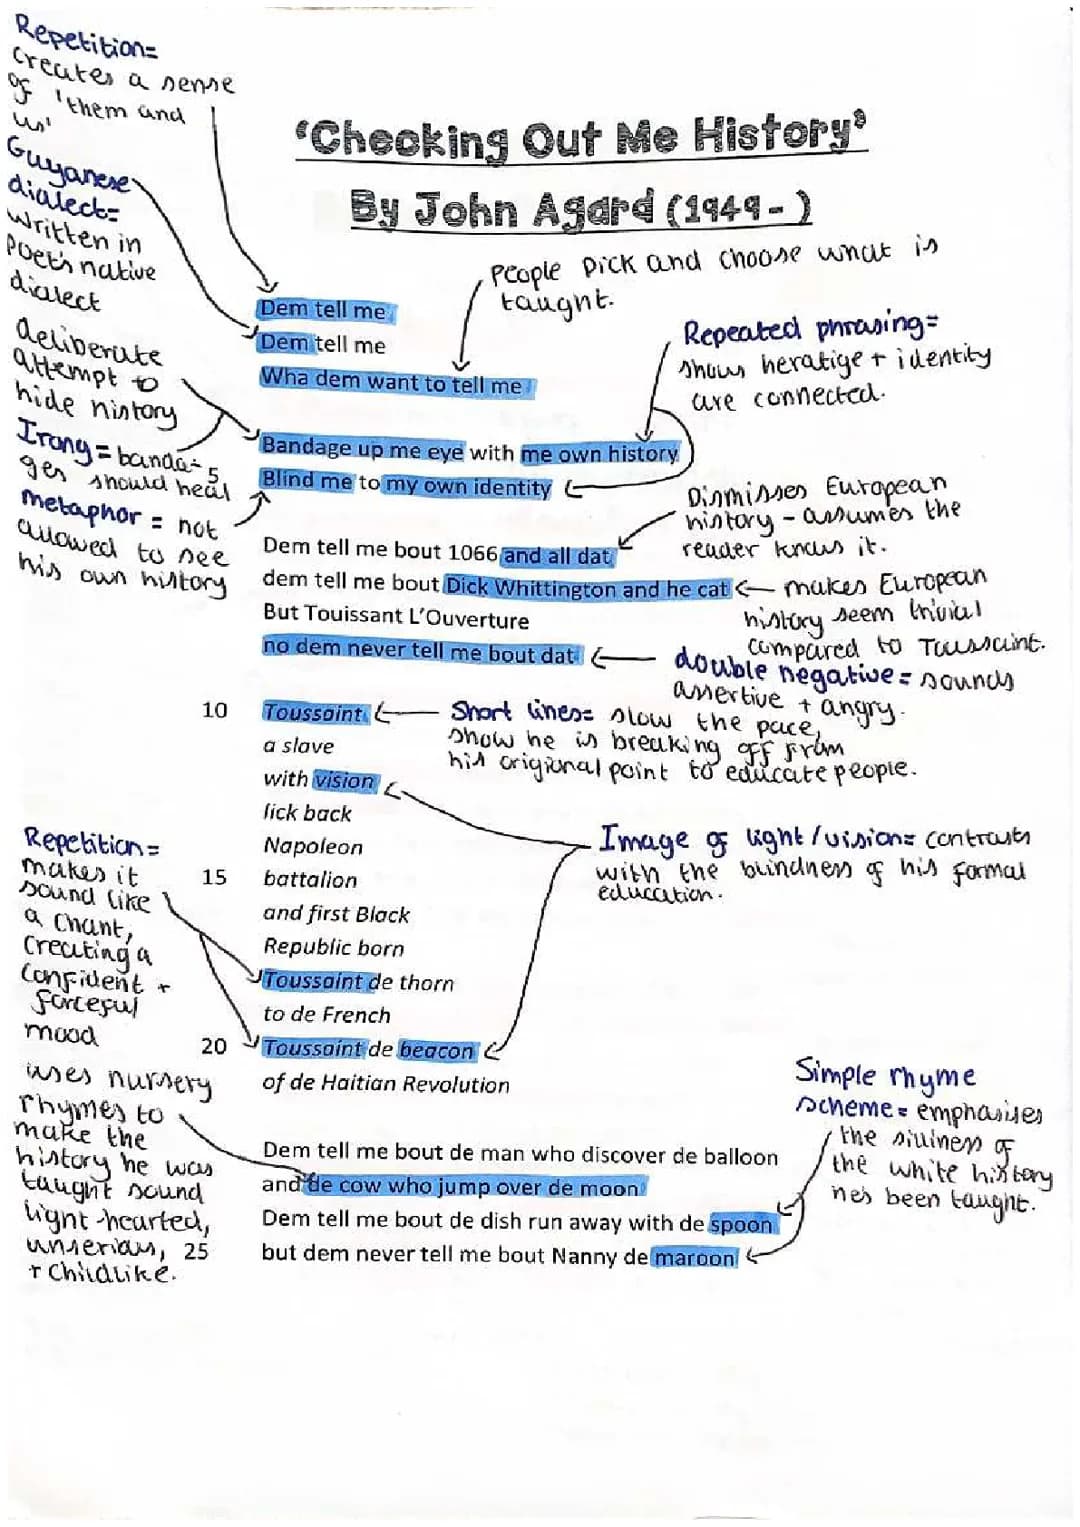 Repetition=
creates a sense
of 'them and
us'
'Checking Out Me History'
By John Agard (1949 - )
Guyanese
dialect=
written in
Poet's native
dialect
People pick and choose what is
taught.
Dem tell me
Dem tell me
Wha dem want to tell me
Repeated phrasing=
shows heratige + identity
are connected.
deliberate
attempt to
hide history
Irony= banda-
ges should heal
metaphor = not
allowed to see
his own history
Bandage up me eye with me own history
5
Blind me to my own identity
Dismisses European
history - assumes the
reader knows it.
Dem tell me bout 1066 and all dat
dem tell me bout Dick Whittington and he cat
But Touissant L'Ouverture
no dem never tell me bout dat
makes European
history seem trivial
compared to Toussaint.
double negative= sounds
assertive + angry.
10 Toussaint
a slave
with vision
lick back
Napoleon
15 battalion
and first Black
Republic born
Toussaint de thorn
to de French
20 Toussaint de beacon
of de Haitian Revolution
Short lines= slow the pace,
show he is breaking off from
his origional point to educate people.
Image of light/vision= contrasts
with the blindness of his formal
education.
Repetition=
makes it
sound like
a chant,
creating a
confident +
forceful
mood
uses nursery
rhymes to
make the
history he was
taught sound
light-hearted,
unserious,
+ childlike.
Dem tell me bout de man who discover de balloon
and de cow who jump over de moon
Dem tell me bout de dish run away with de spoon
25 but dem never tell me bout Nanny de maroon
Simple rhyme
scheme= emphasises
the silliness of
the white history
hes been taught.